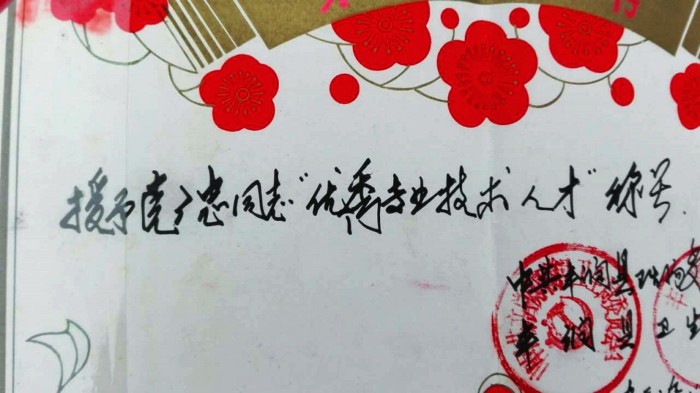 授予党广忠同志“优秀专业技术人才”称号.
中共丰润县
丰润县卫生